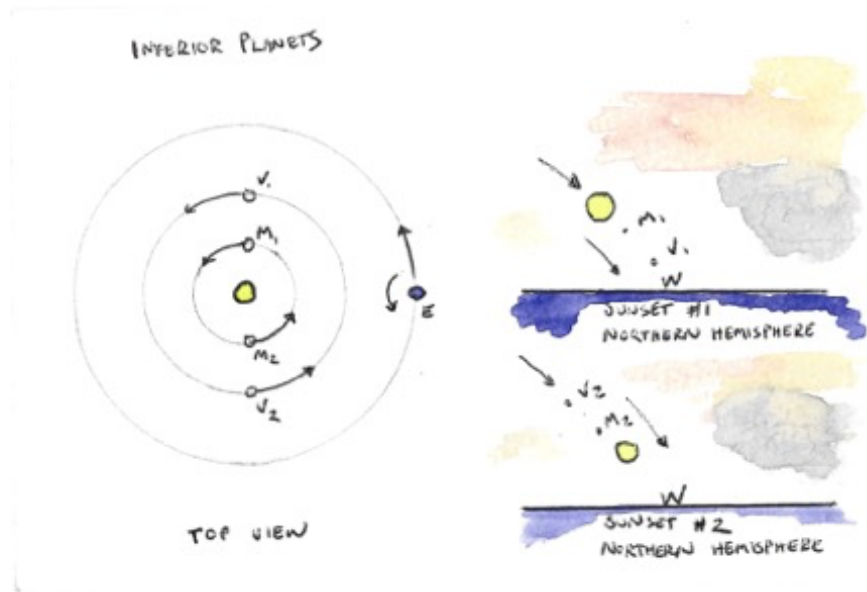 INFERIOR PLANETS
V₁
M₁
E
M₂
V₂
TOP VIEW
M₁
V₁
W
SUNSET #1
NORTHERN HEMISPHERE
V2
M2
W
SUNSET #2
NORTHERN HEMISPHERE